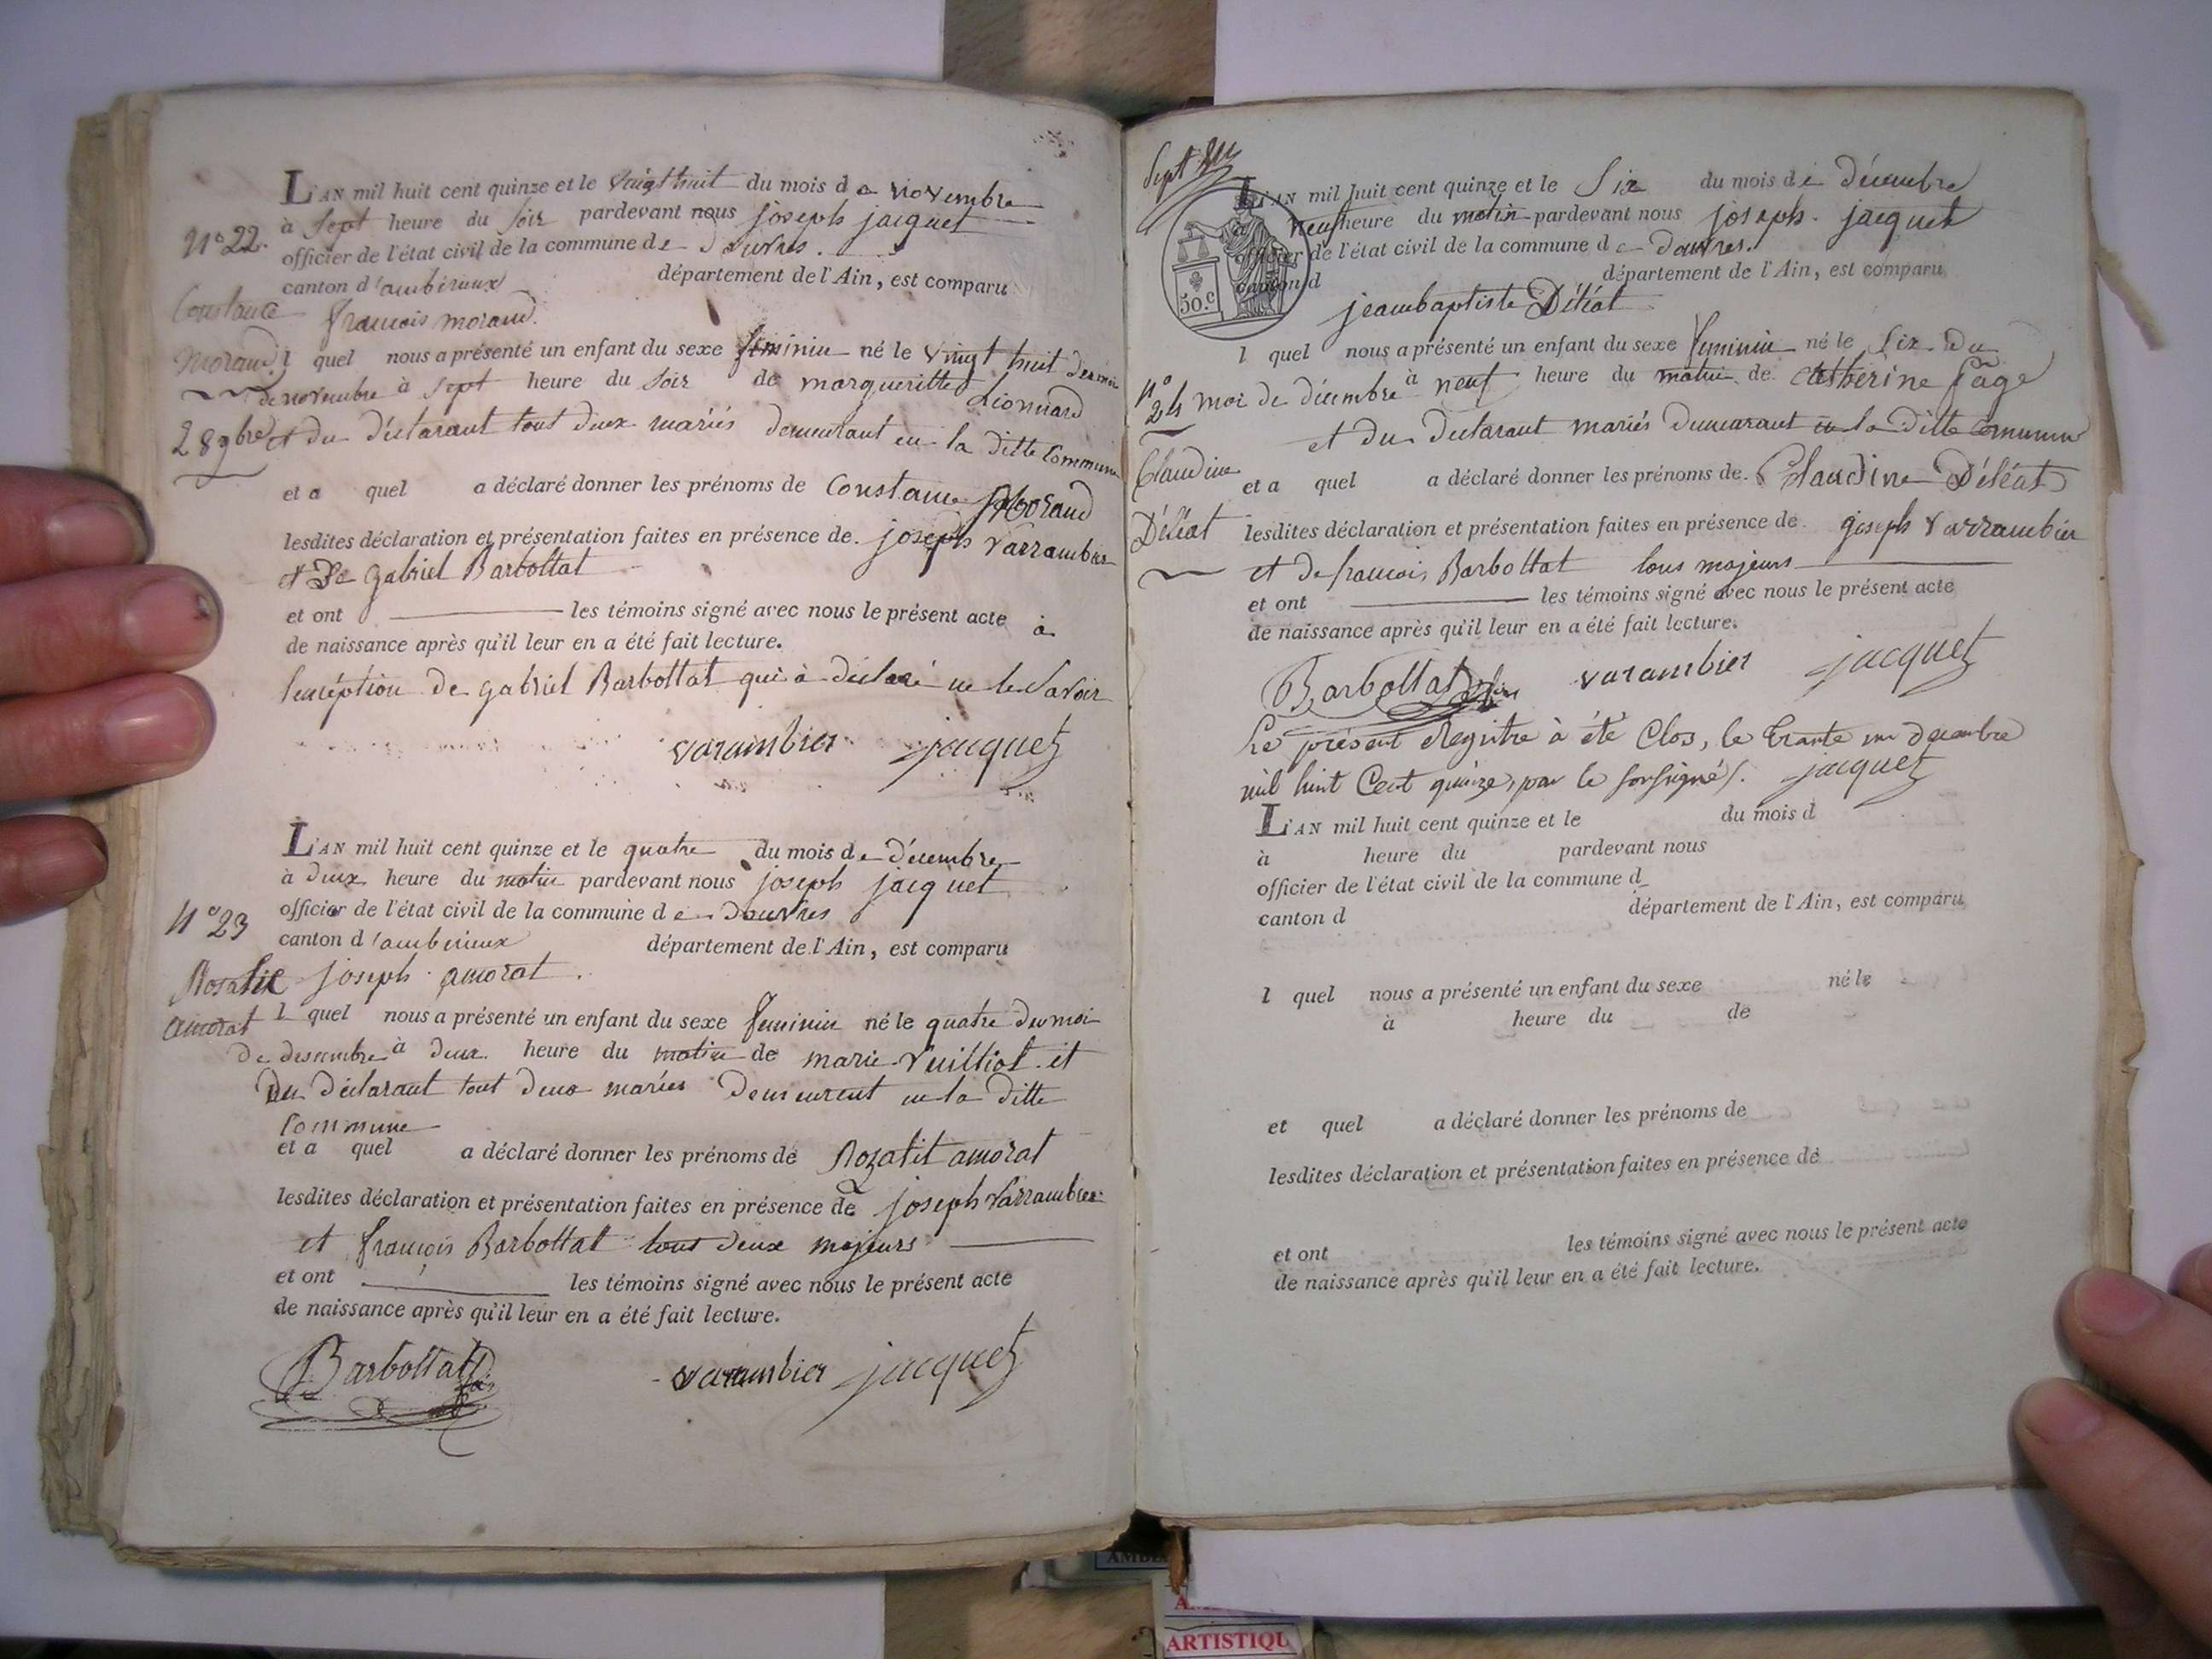 L'AN mil huit cent quinze et le vingt huit du mois de novembre
N° 22. à sept heure du soir pardevant nous joseph jacquet
officier de l'état civil de la commune de Douvres.
canton d'ambérieux département de l'Ain, est comparu
Constance françois morand.
Morand l quel nous a présenté un enfant du sexe féminin né le vingt huit du moi
de novembre à sept heure du soir de margueritte Lionnard
28 9bre et du déclarant tout deux mariés demeurant en la ditte Commune
et a quel a déclaré donner les prénoms de Constance Morand
lesdites déclaration et présentation faites en présence de joseph Varrambier
et De gabriel Barbottat
et ont les témoins signé avec nous le présent acte à
de naissance après qu'il leur en a été fait lecture.
l'exception de gabriel Barbottat qui à déclaré ne le savoir
varambier jacquet
L'AN mil huit cent quinze et le quatre du mois de décembre
à deux heure du matin pardevant nous joseph jacquet
N° 23 officier de l'état civil de la commune de Douvres
canton d'amberieux département de l'Ain, est comparu
Rosalie joseph amorat.
amorat l quel nous a présenté un enfant du sexe feminin né le quatre du moi
de desembre à deux heure du matin de marie Vuilliot et
Du déclarant tout deux mariés Demeurent en la ditte
Commune
et a quel a déclaré donner les prénoms de Rozalit amorat
lesdites déclaration et présentation faites en présence de joseph Varrambier
et françois Barbottat tous deux majeurs
et ont les témoins signé avec nous le présent acte
de naissance après qu'il leur en a été fait lecture.
Barbottat varambier jacquet
Sept
L'AN mil huit cent quinze et le Six du mois de décembre
à neuf heure du matin pardevant nous joseph jacquet
officier de l'état civil de la commune de Douvres.
canton d département de l'Ain, est comparu
50.c
jeambaptiste Déléat
l quel nous a présenté un enfant du sexe feminin né le Six du
N° 24 moi de décembre à neuf heure du matin de Catherine fage
et du Declarant mariés Demeurant en la Ditte Commune
Claudine et a quel a déclaré donner les prénoms de Claudine Déléat
Déléat lesdites déclaration et présentation faites en présence de joseph Varrambier
et de françois Barbottat tous majeurs
et ont les témoins signé avec nous le présent acte
de naissance après qu'il leur en a été fait lecture.
Barbottat varambier jacquet
Le présent Registre à été Clos, le trante un decembre
mil huit Cent quinze, par le soussigné. jacquet
L'AN mil huit cent quinze et le du mois d
à heure du pardevant nous
officier de l'état civil de la commune d
canton d département de l'Ain, est comparu
l quel nous a présenté un enfant du sexe né le
à heure du de
et quel a déclaré donner les prénoms de
lesdites déclaration et présentation faites en présence de
et ont les témoins signé avec nous le présent acte
de naissance après qu'il leur en a été fait lecture.
ARTISTIQU